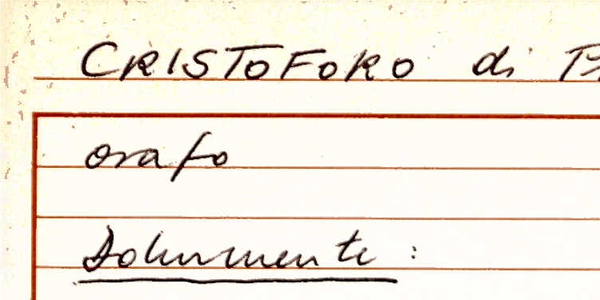 CRISTOFORO di
orafo
Dokumente: